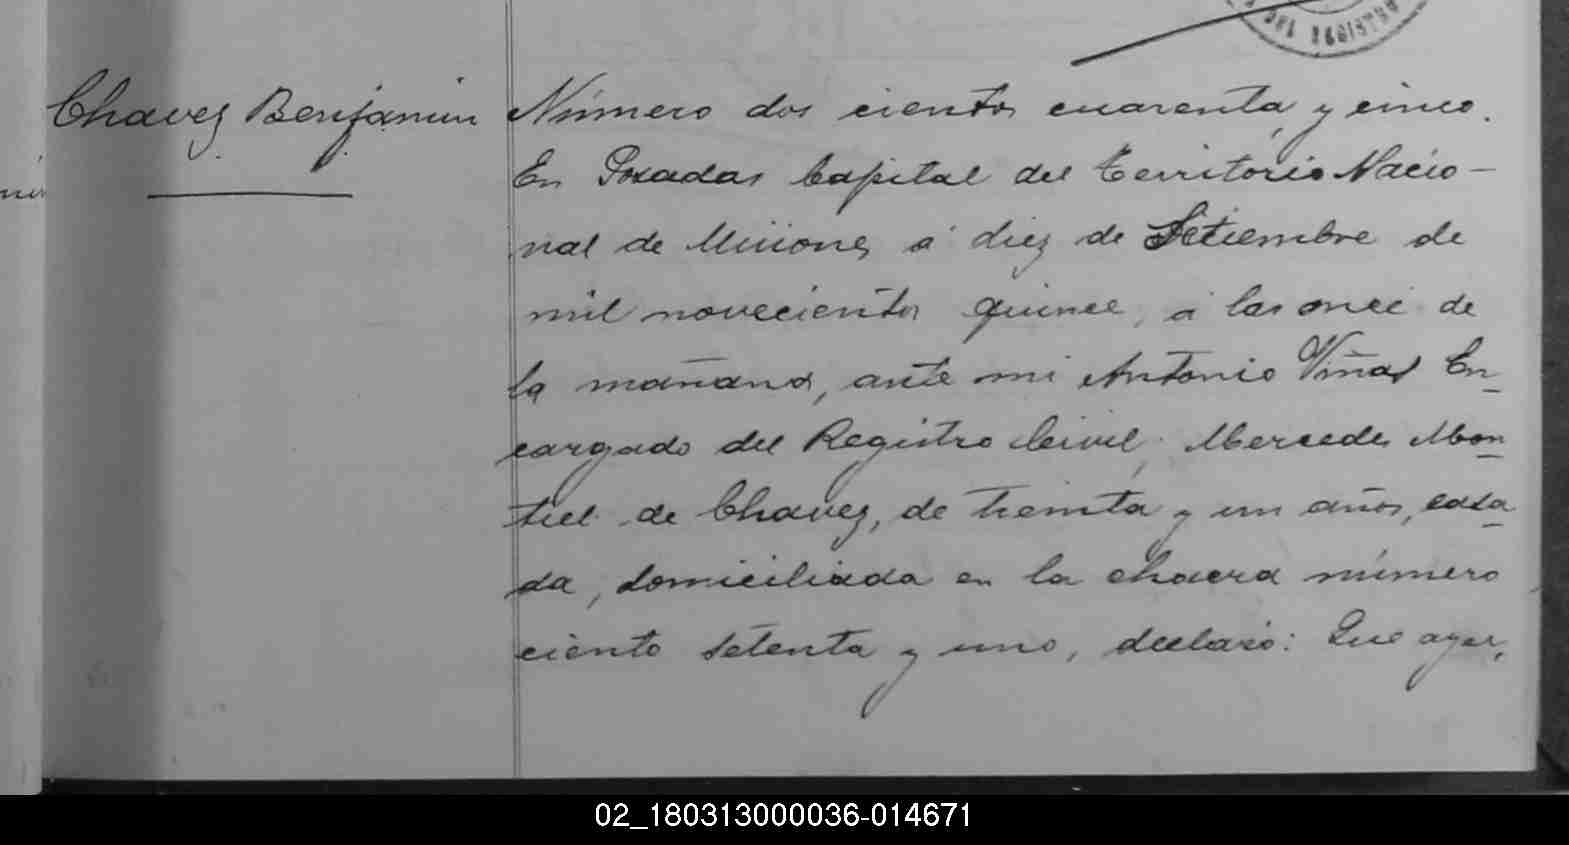 Chavez Benjamin
Número dos cientos cuarenta y cinco.
En Posadas Capital del Territorio Nacio-
nal de Misiones á diez de Setiembre de
mil novecientos quince, á las once de
la mañana, ante mi Antonio Viñas En-
cargado del Registro Civil, Mercedes Mon-
tiel de Chavez, de treinta y un años, casa-
da, domiciliada en la chacra número
ciento setenta y uno, declaró: Que ayer,
02_180313000036-014671